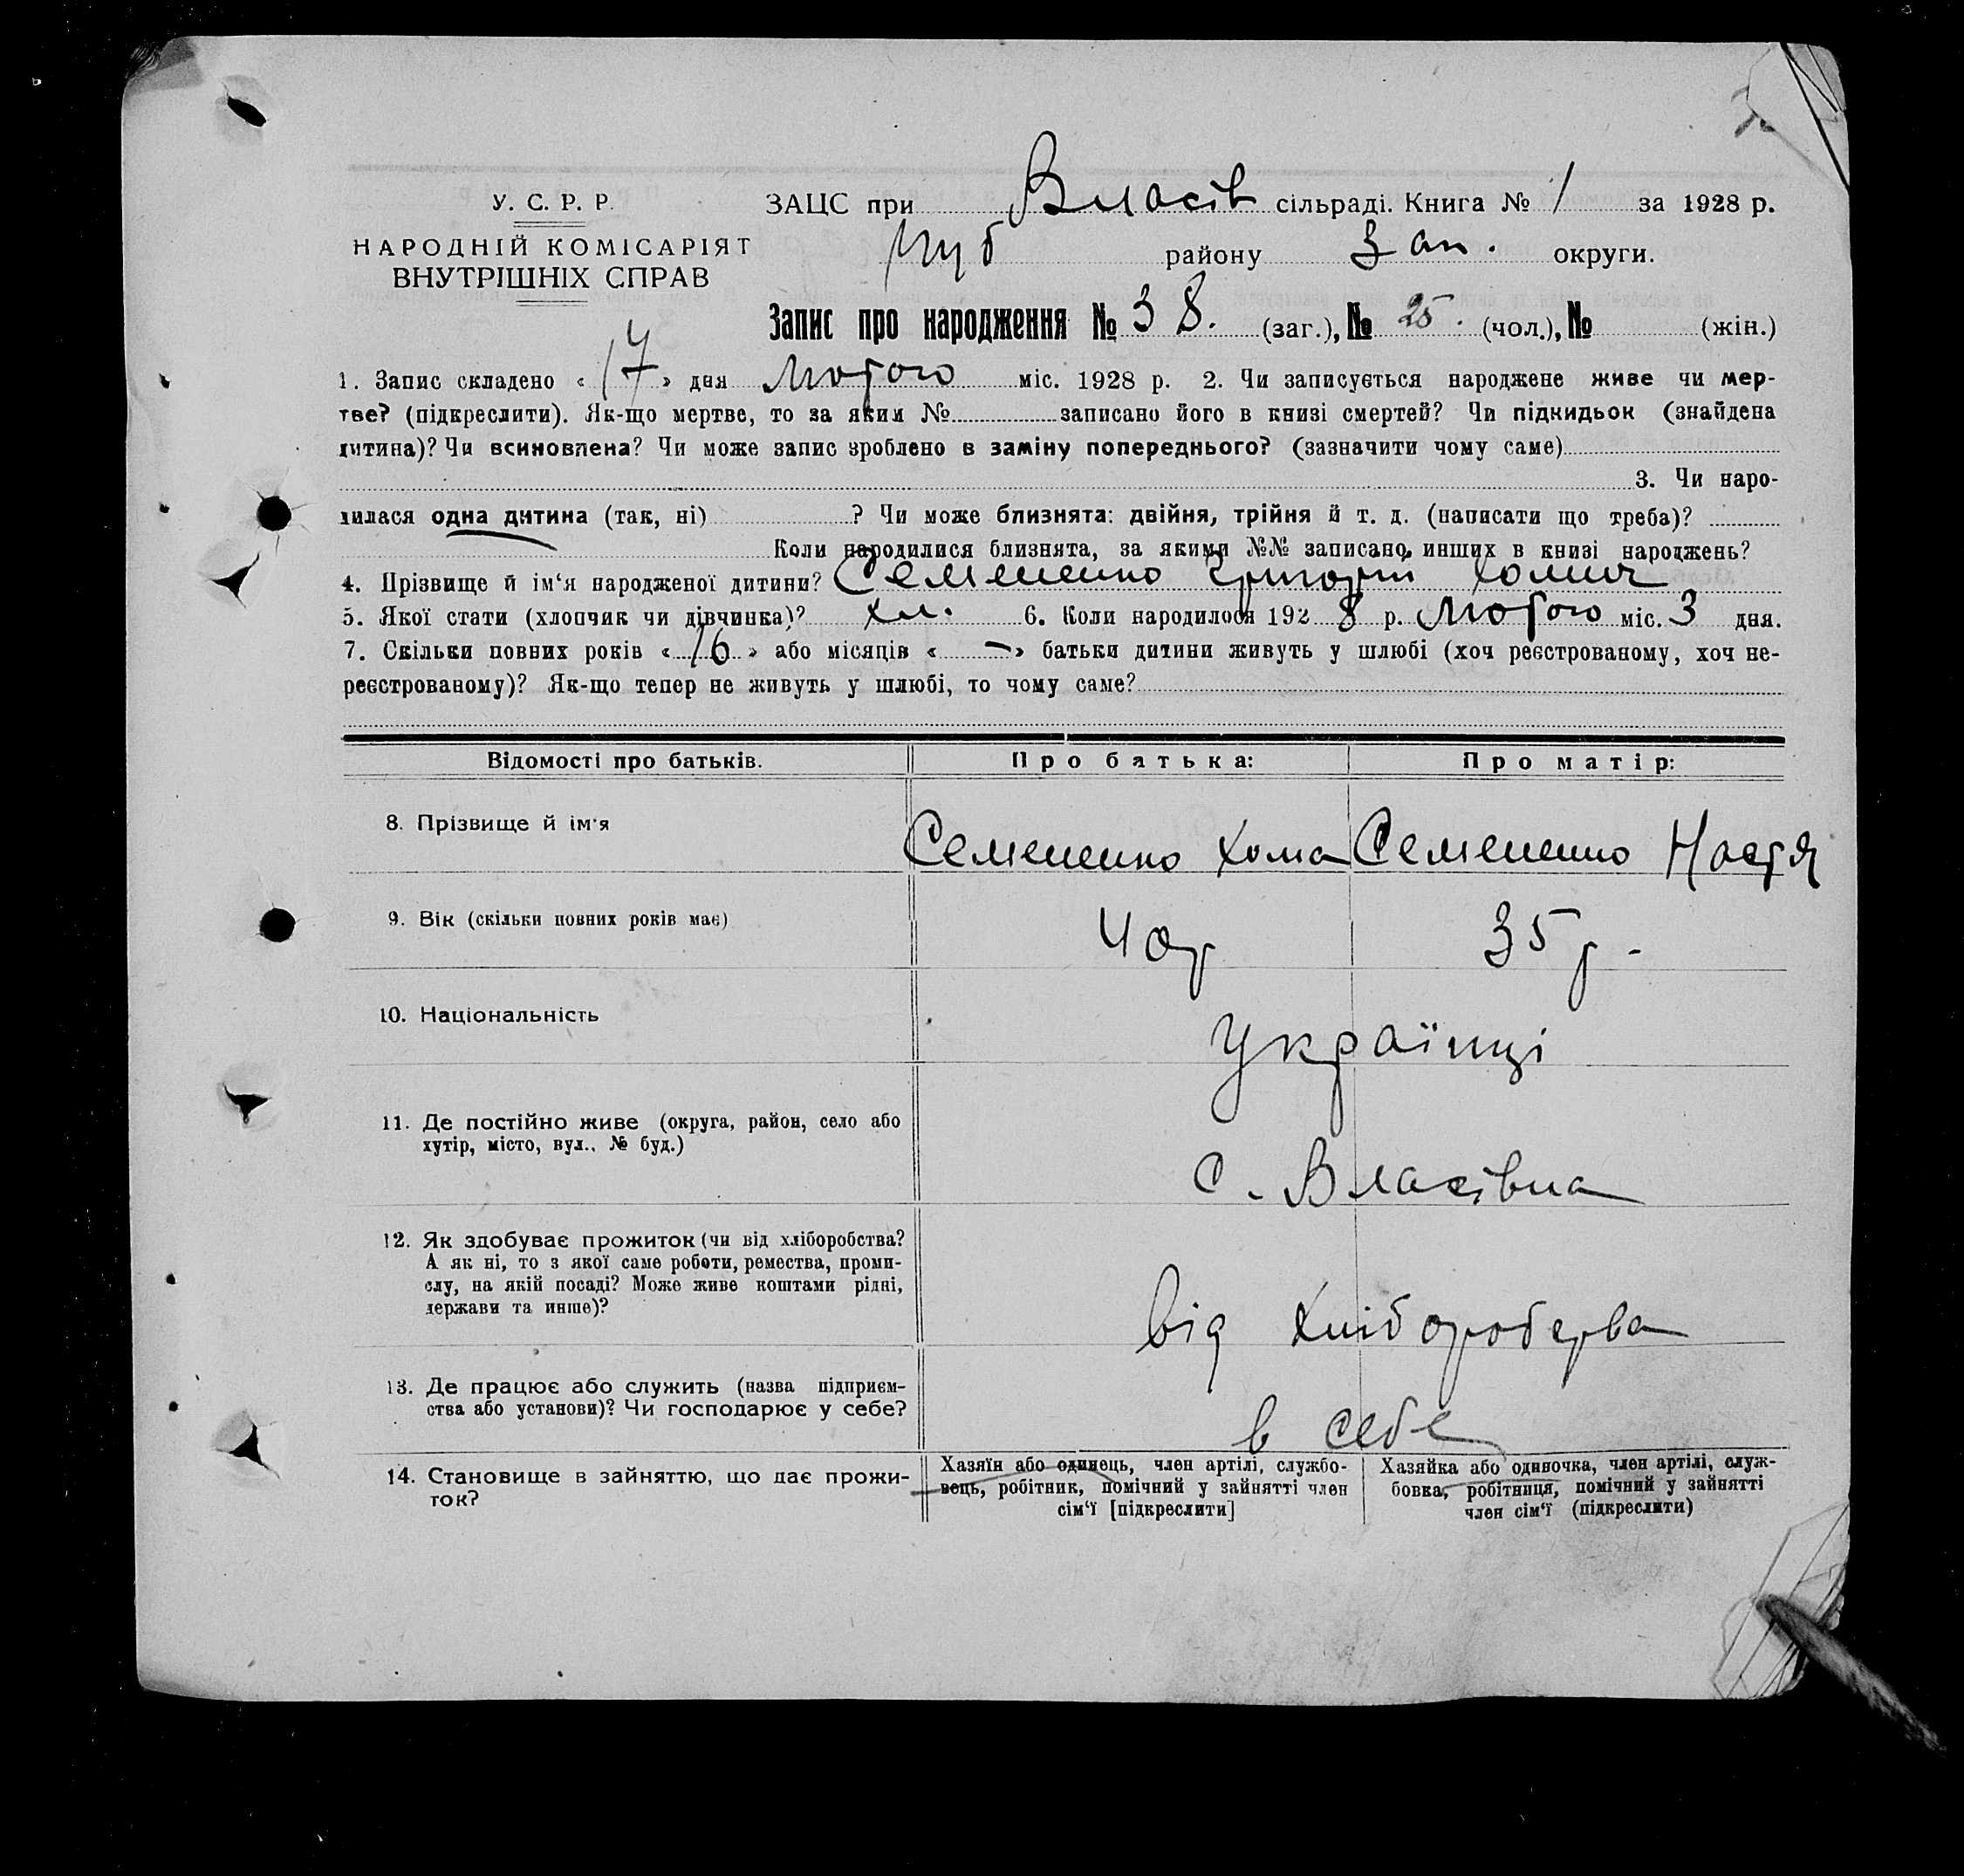 У. С. Р. Р.
НАРОДНІЙ КОМІСАРІЯТ
ВНУТРІШНІХ СПРАВ
ЗАЦС при Власів сільраді. Книга № 1 за 1928 р.
району Зап. округи.
Запис про народження № 38. (заг.), № 25. (чол.), № (жін.)
1. Запис складено « 17 » дня Лютого міс. 1928 р. 2. Чи записується народжене живе чи мер-
тве? (підкреслити). Як-що мертве, то за яким № записано його в книзі смертей? Чи підкидьок (знайдена
дитина)? Чи всиновлена? Чи може запис зроблено в заміну попереднього? (зазначити чому саме)
3. Чи наро-
дилася одна дитина (так, ні) ? Чи може близнята: двійня, трійня й т. д. (написати що треба)?
Коли народилися близнята, за якими №№ записано инших в книзі народжень?
4. Прізвище й ім‘я народженої дитини? Семененко Григорій Хомич
5. Якої стати (хлопчик чи дівчинка)? хл. 6. Коли народилося 1928 р. Лютого міс. 3 дня.
7. Скільки повних років « 16 » або місяців « — » батьки дитини живуть у шлюбі (хоч реєстрованому, хоч не-
реєстрованому)? Як-що тепер не живуть у шлюбі, то чому саме?
Відомості про батьків. Про батька: Про матір:
8. Прізвище й ім‘я Семененко Хома Семененко Настя
9. Вік (скільки повних років має) 40р 35 р.
10. Національність Українці
11. Де постійно живе (округа, район, село або
хутір, місто, вул., № буд.)
с. Власівка
12. Як здобуває прожиток (чи від хліборобства?
А як ні, то з якої саме роботи, ремества, проми-
слу, на якій посаді? Може живе коштами рідні,
держави та инше)?
від Хліборобства
13. Де працює або служить (назва підприєм-
ства або установи)? Чи господарює у себе?
в себе
14. Становище в зайняттю, що дає прожи-
ток?
Хазяїн або одинець, член артілі, службо-
вець, робітник, помічний у зайнятті член
сім‘ї [підкреслити]
Хазяйка або одиночка, член артілі, служ-
бовка, робітниця, помічний у зайнятті
член сім‘ї (підкреслити)